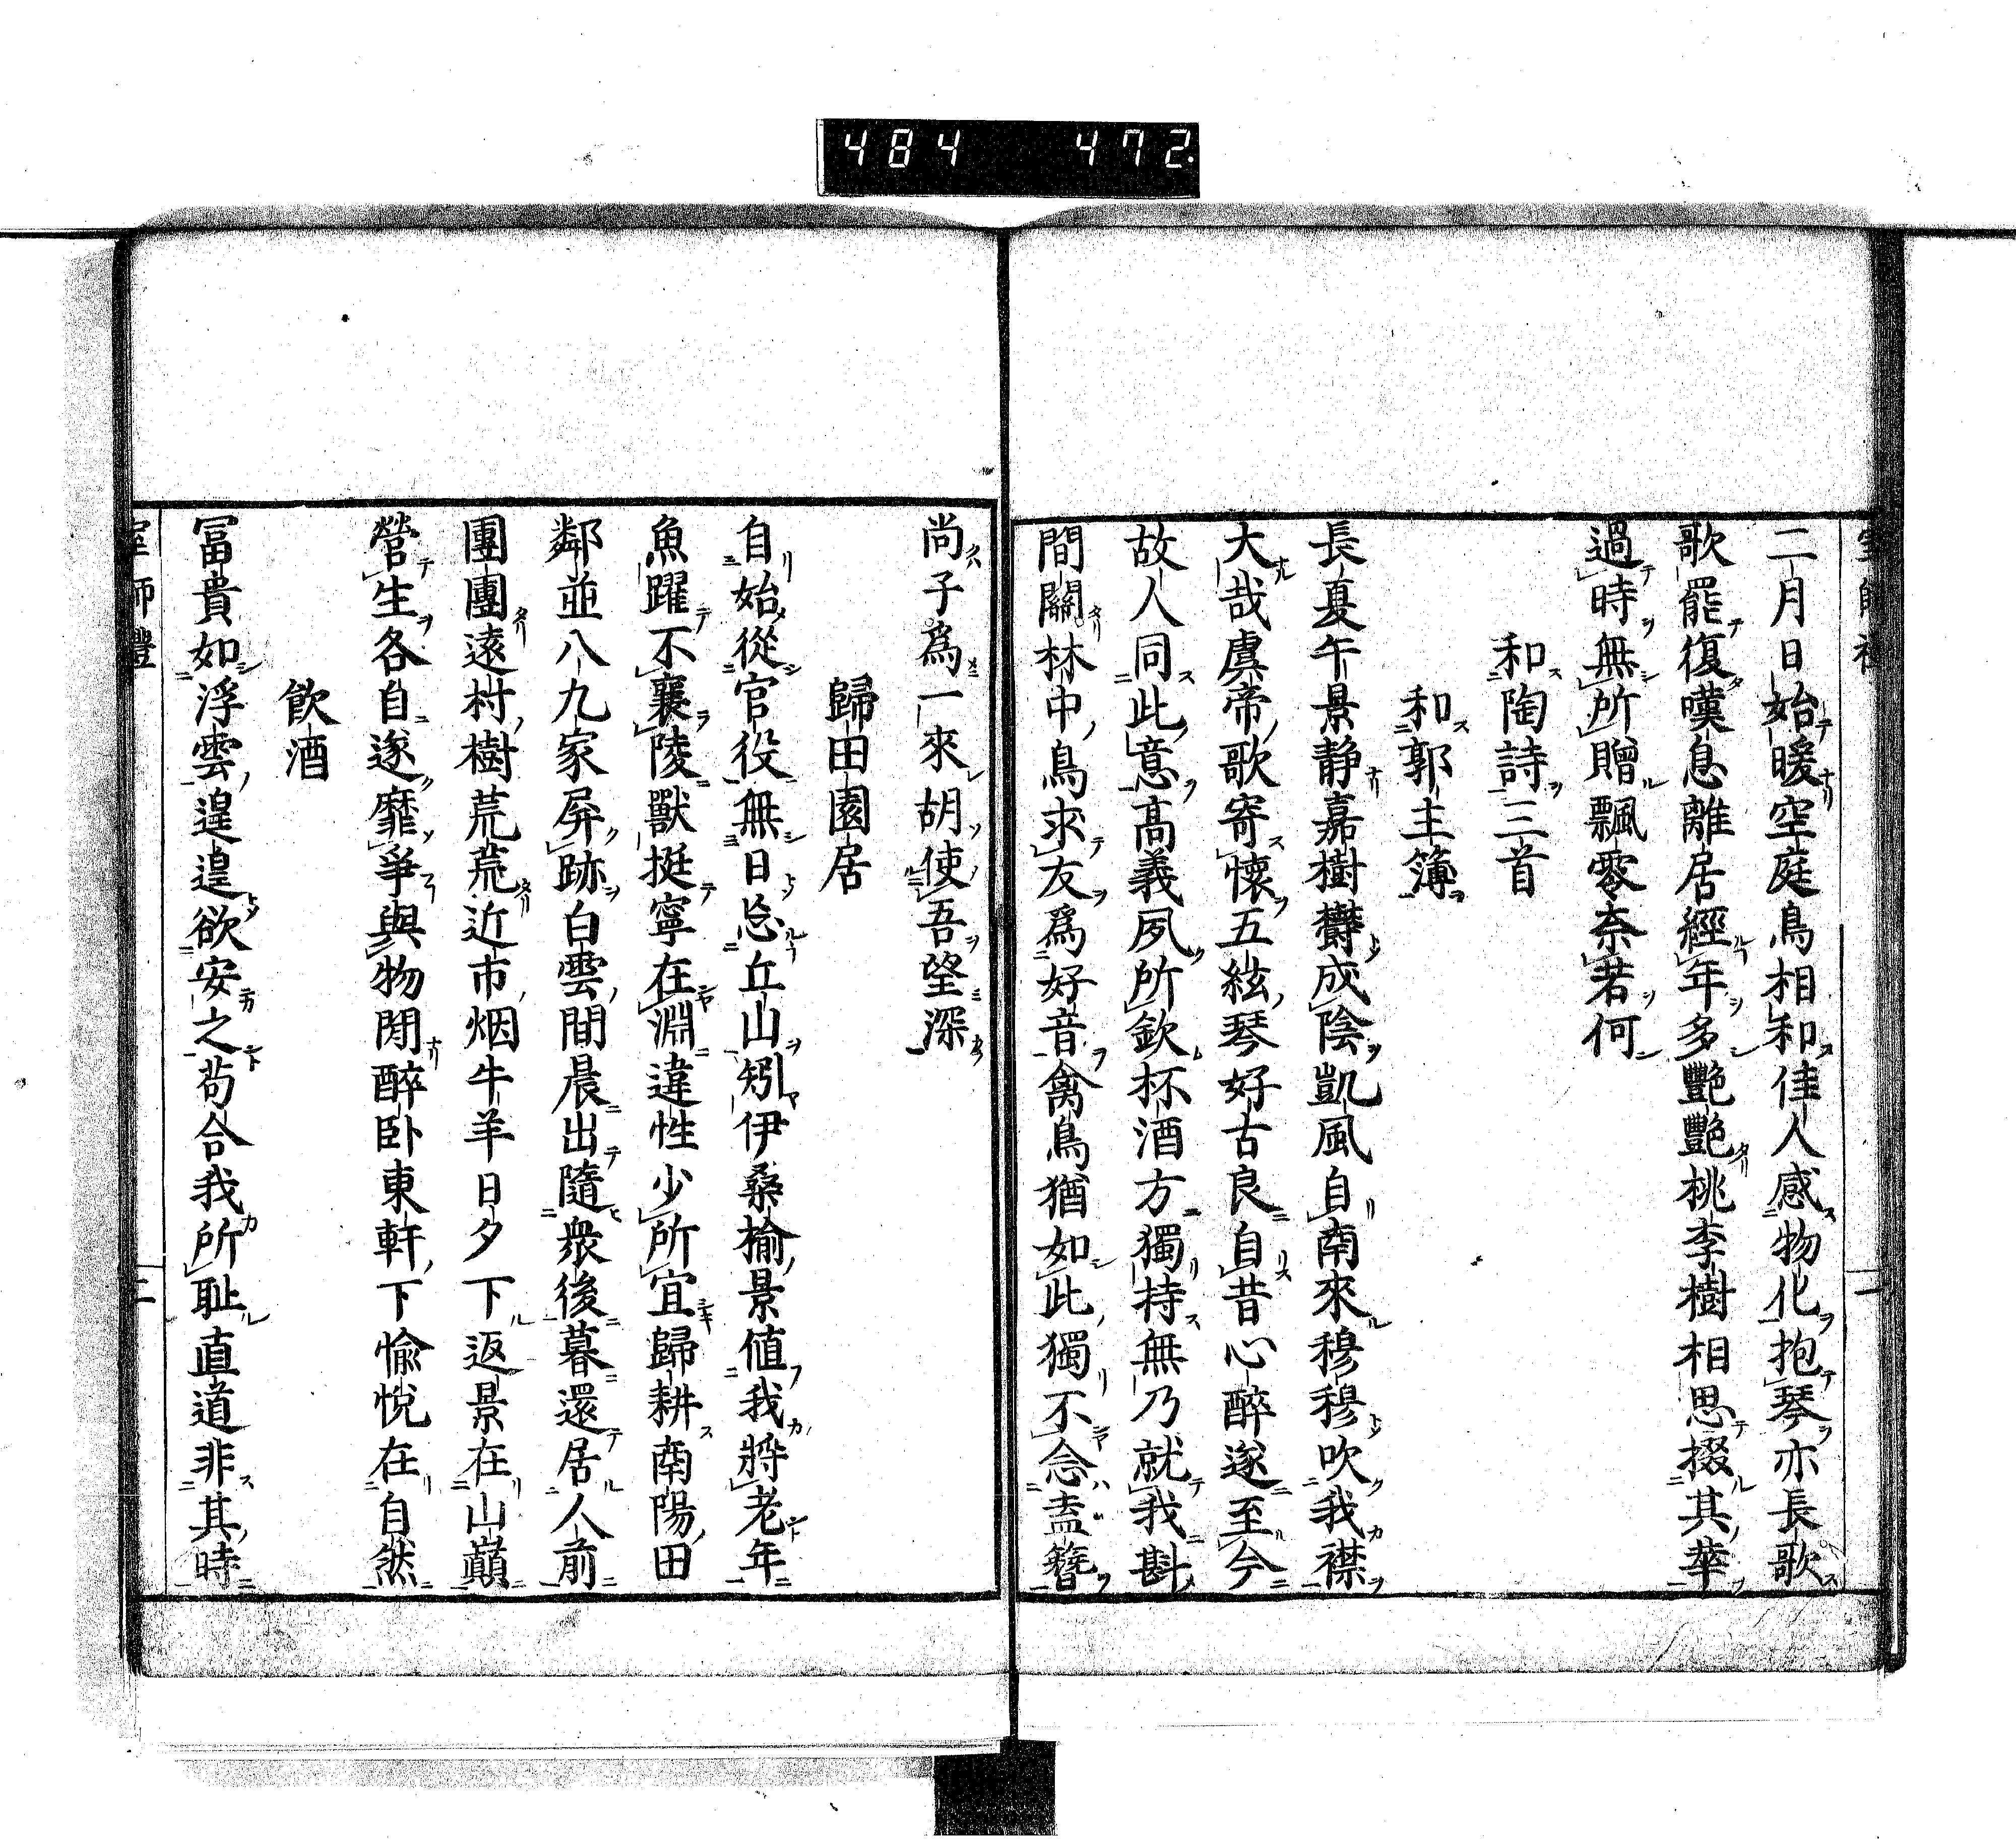 484 472
二月日始暖空庭鳥相和佳人感物化抱琴亦長歌
歌罷復嘆息離居經年多艷艷桃李樹相思掇其華
過時無所贈飄零奈若何
和陶詩三首
和郭主簿
長夏午景静嘉樹欝成陰凱風自南來穆穆吹我襟
大哉虞帝歌寄懷五絃琴好古良自昔心醉遂至今
故人同此意高義夙所欽杯酒方獨持無乃就我斟
間關林中鳥求友為好音禽鳥猶如此獨不念盍簪
尚子為一來胡使吾望深
歸田園居
自始從官役無日忘丘山矧伊桑榆景值我將老年
魚躍不襄陵獸挺寧在淵違性少所宜歸耕南陽田
鄰並八九家屏跡白雲間晨出隨衆後暮還居人前
團團遠村樹荒荒近市烟牛羊日夕下返景在山巔
營生各自遂靡爭與物閒醉卧東軒下愉悅在自然
飲酒
冨貴如浮雲遑遑欲安之苟合我所耻直道非其時
三